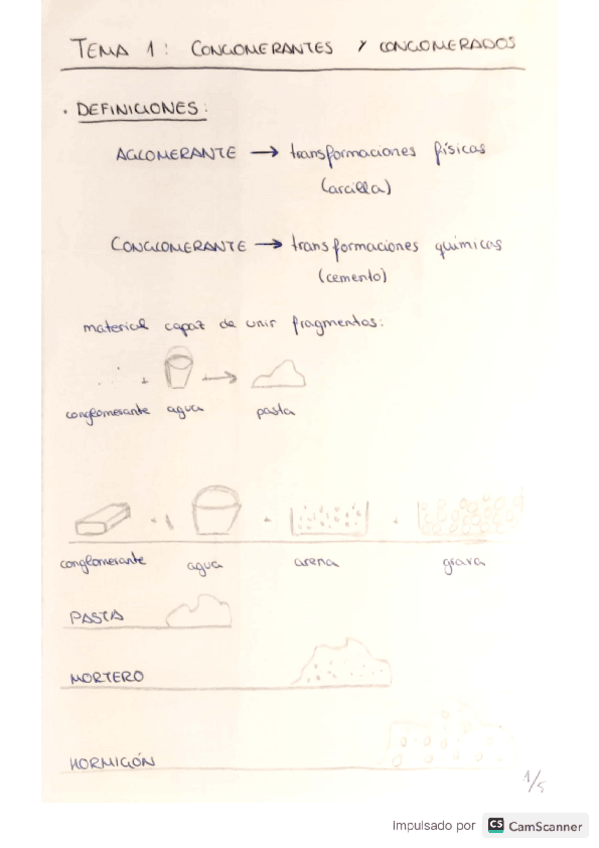 TEMA 1: CONGLOMERANTES Y CONGLOMERADOS
· DEFINICIONES:
AGLOMERANTE → transformaciones físicas
(arcilla)
CONGLOMERANTE → transformaciones químicas
(cemento)
material capaz de unir fragmentos:
+ →
conglomerante agua pasta
+ + +
conglomerante agua arena grava
PASTA
MORTERO
HORMIGÓN
1/5
Impulsado por CS CamScanner